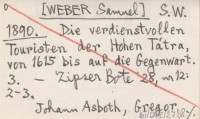 [WEBER Samuel] S.W.
1890. Die verdienstvollen
Touristen der Hohen Tátra,
von 1615 bis auf die Gegenwart.
3. – Zipser Bote 28, nr 12:
2-3.
Johann Asboth, Gregor